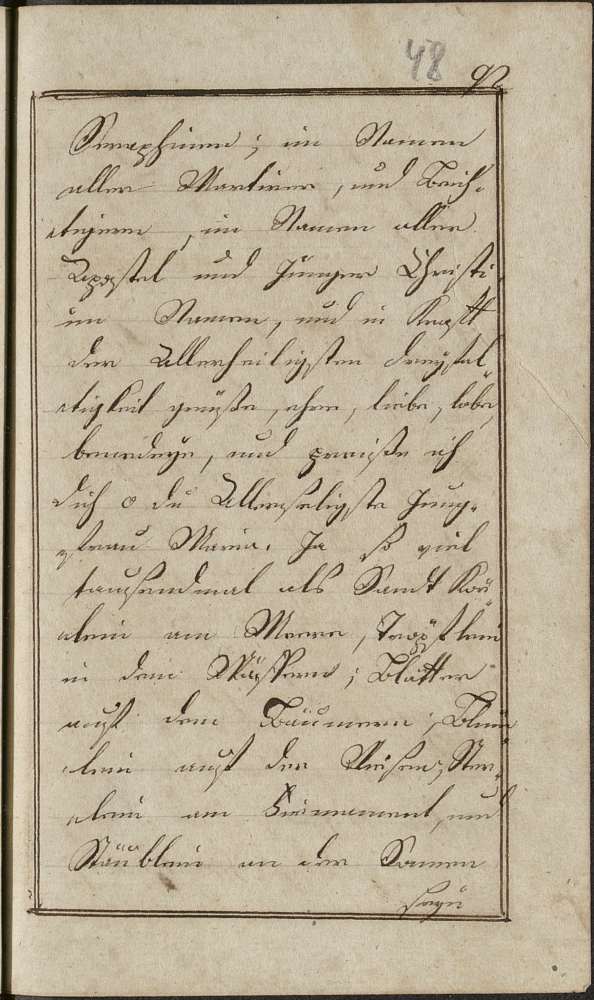 48 92
Seraphinen; im Namen
aller Martirer, und Beich-
tigern, im Namen aller
Apostel und Jünger Christi
im Namen, und in Krafft
der Allerheiligsten Dreyfal-
tigkeit grüße, ehre, liebe, lobe,
benedeye, und preiße ich
dich o du Allerseligste Jung-
frau Maria. Ja so viel
tausendmal als Sandt Kör-
lein am Meere, Tröpflein
in dem Wässern; Blätter
auf den Bäumern; Blüm-
lein auf der Wiesen; Ster-
lein am Firmament, und
Stäublein an der Sonnen
seyn